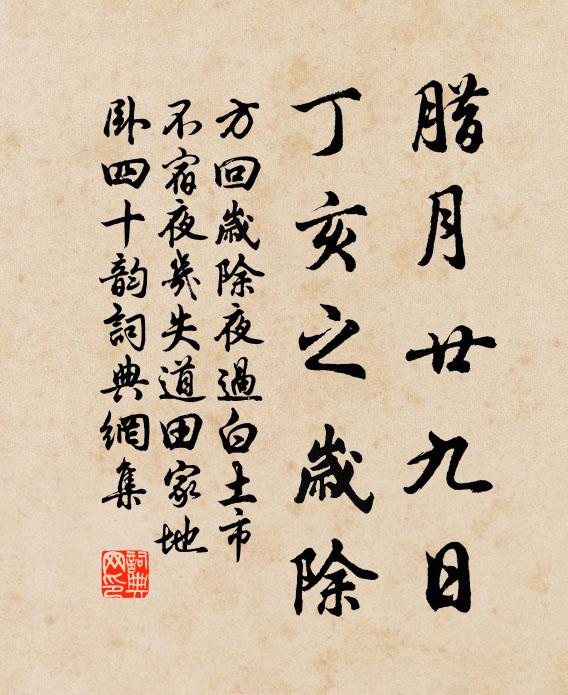 腊月廿九日
丁亥之歲除
方回歲除夜過白土市
不宿夜幾失道田家地
臥四十韵詞典網集
詞典网印